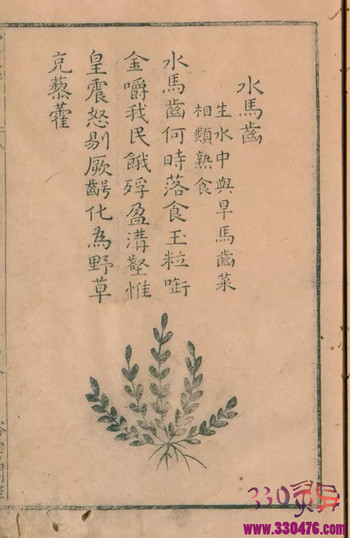 水馬齒
生水中與旱馬齒菜
相類熟食
水馬齒何時落食玉粒啣
金嚼我民餓殍盈溝壑惟
皇震怒剔厥齶化為野草
充藜藿
www.330476.com